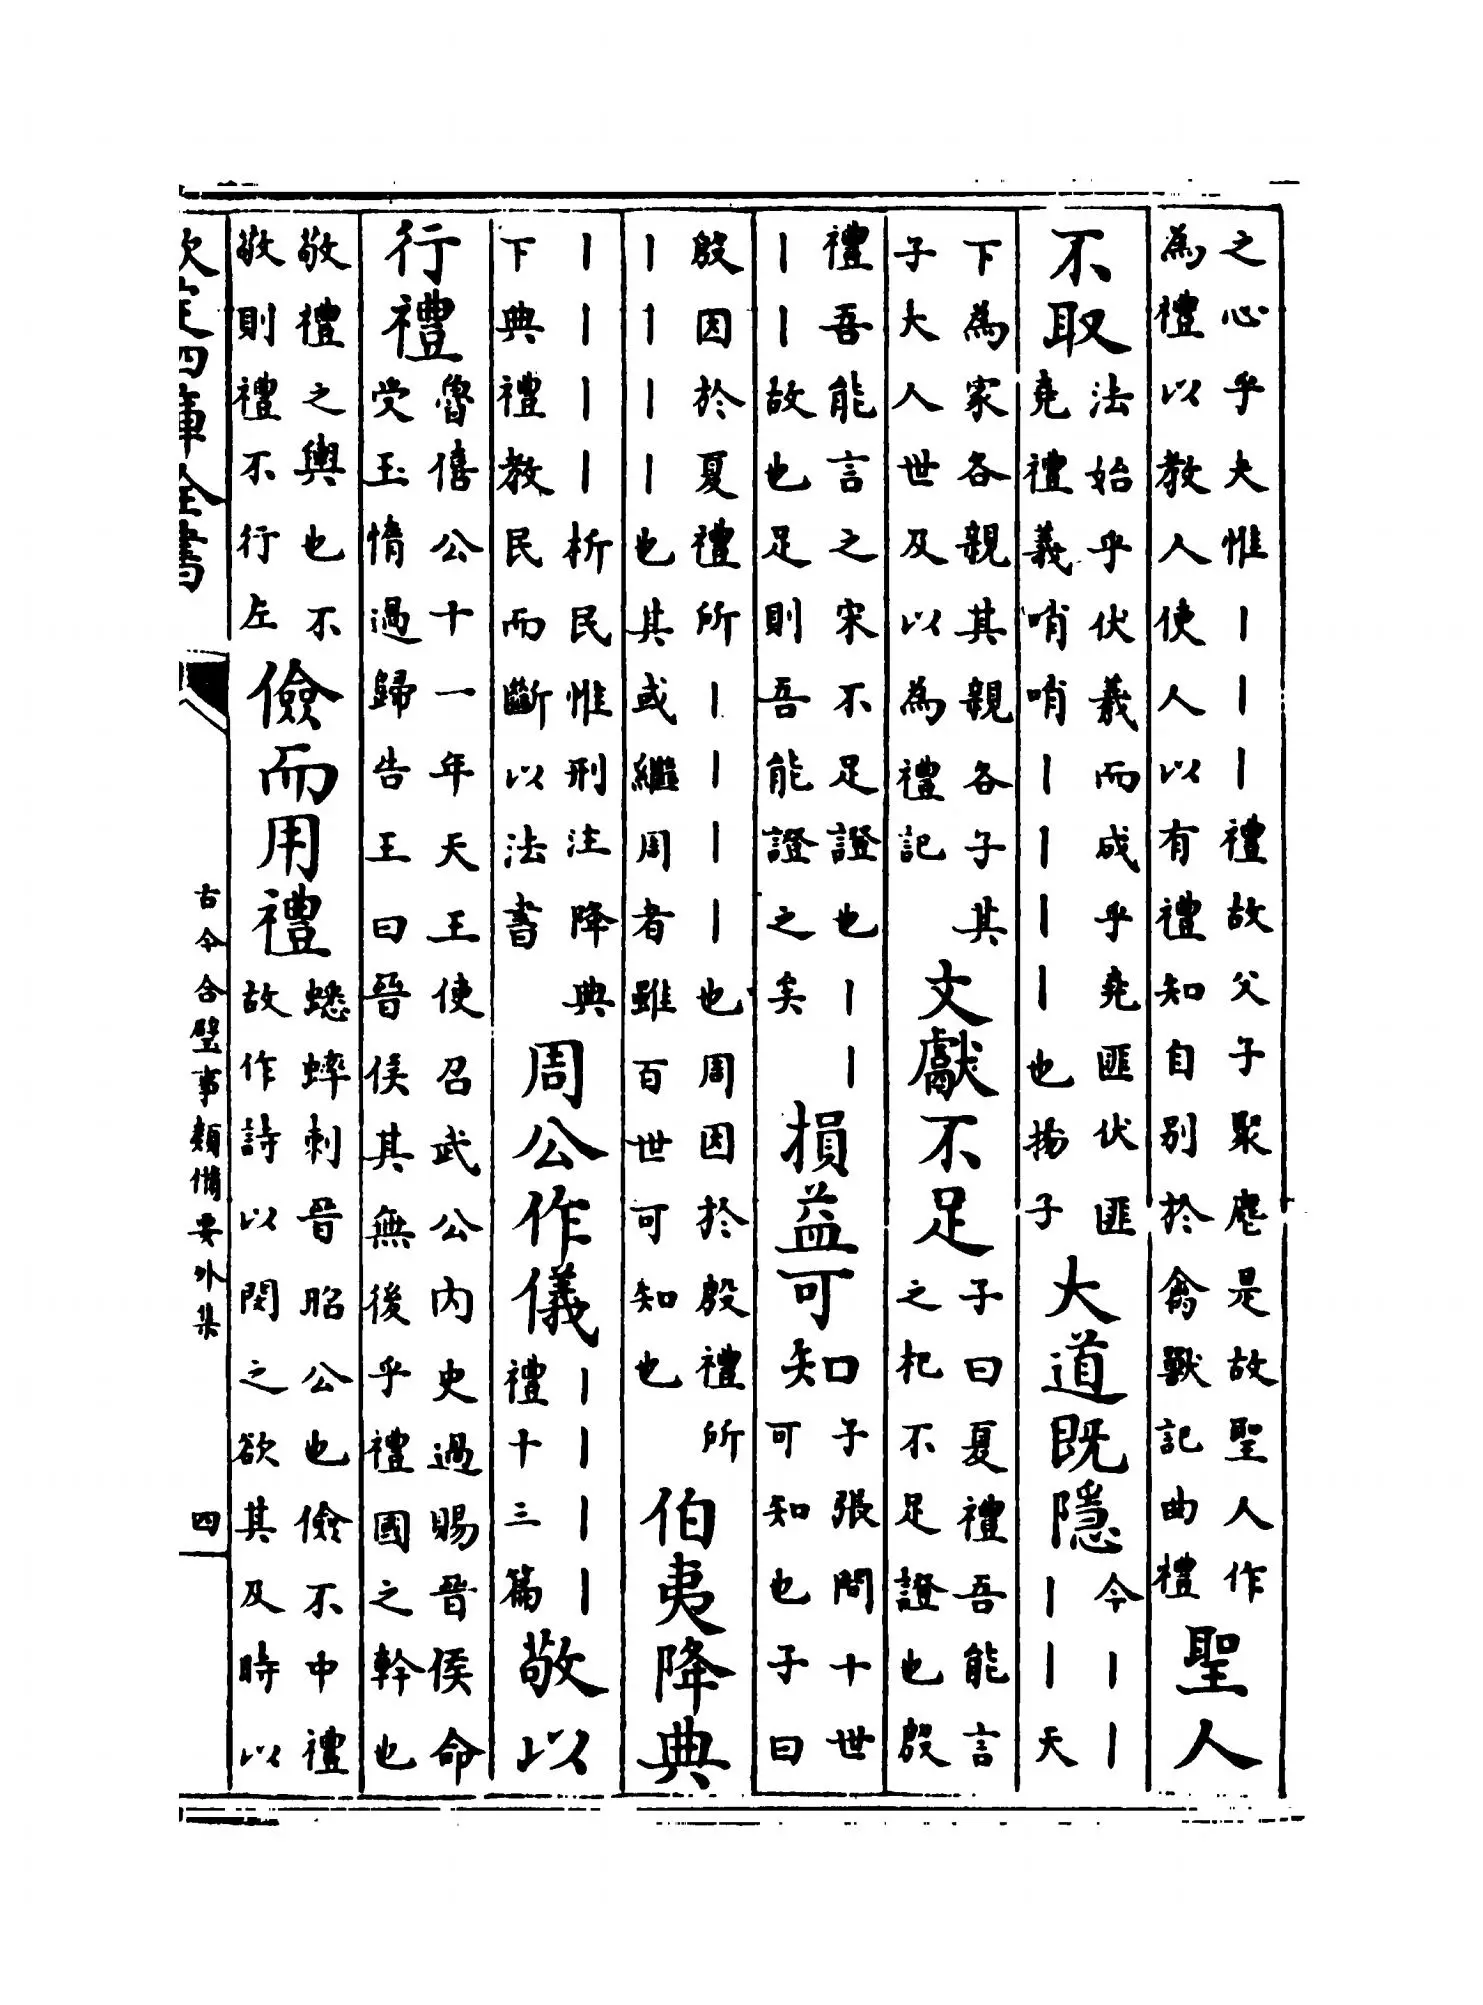 之心乎夫惟丨丨丨禮故父子聚麀是故聖人作
為禮以教人使人以有禮知自別於禽獸記曲禮
聖人
不取
法始乎伏羲而成乎堯匪伏匪
堯禮義哨哨丨丨丨丨也揚子
大道既隱
今丨丨
丨丨天
下為家各親其親各子其
子大人世及以為禮記
文獻不足
子曰夏禮吾能言
之杞不足證也殷
禮吾能言之宋不足證也丨丨
丨丨故也足則吾能證之矣
損益可知
子張問十世
可知也子曰
殷因於夏禮所丨丨丨丨也周因於殷禮所
丨丨丨丨也其或繼周者雖百世可知也
伯夷降典
丨丨丨丨析民惟刑注降典
下典禮教民而斷以法書
周公作儀
丨丨丨丨
禮十三篇
敬以
行禮
魯僖公十一年天王使召武公內史過賜晉侯命
受玉惰過歸告王曰晉侯其無後乎禮國之幹也
敬禮之輿也不
敬則禮不行左
儉而用禮
蟋蟀刺晉昭公也儉不中禮
故作詩以閔之欲其及時以
欽定四庫全書
古今合璧事類備要外集
四